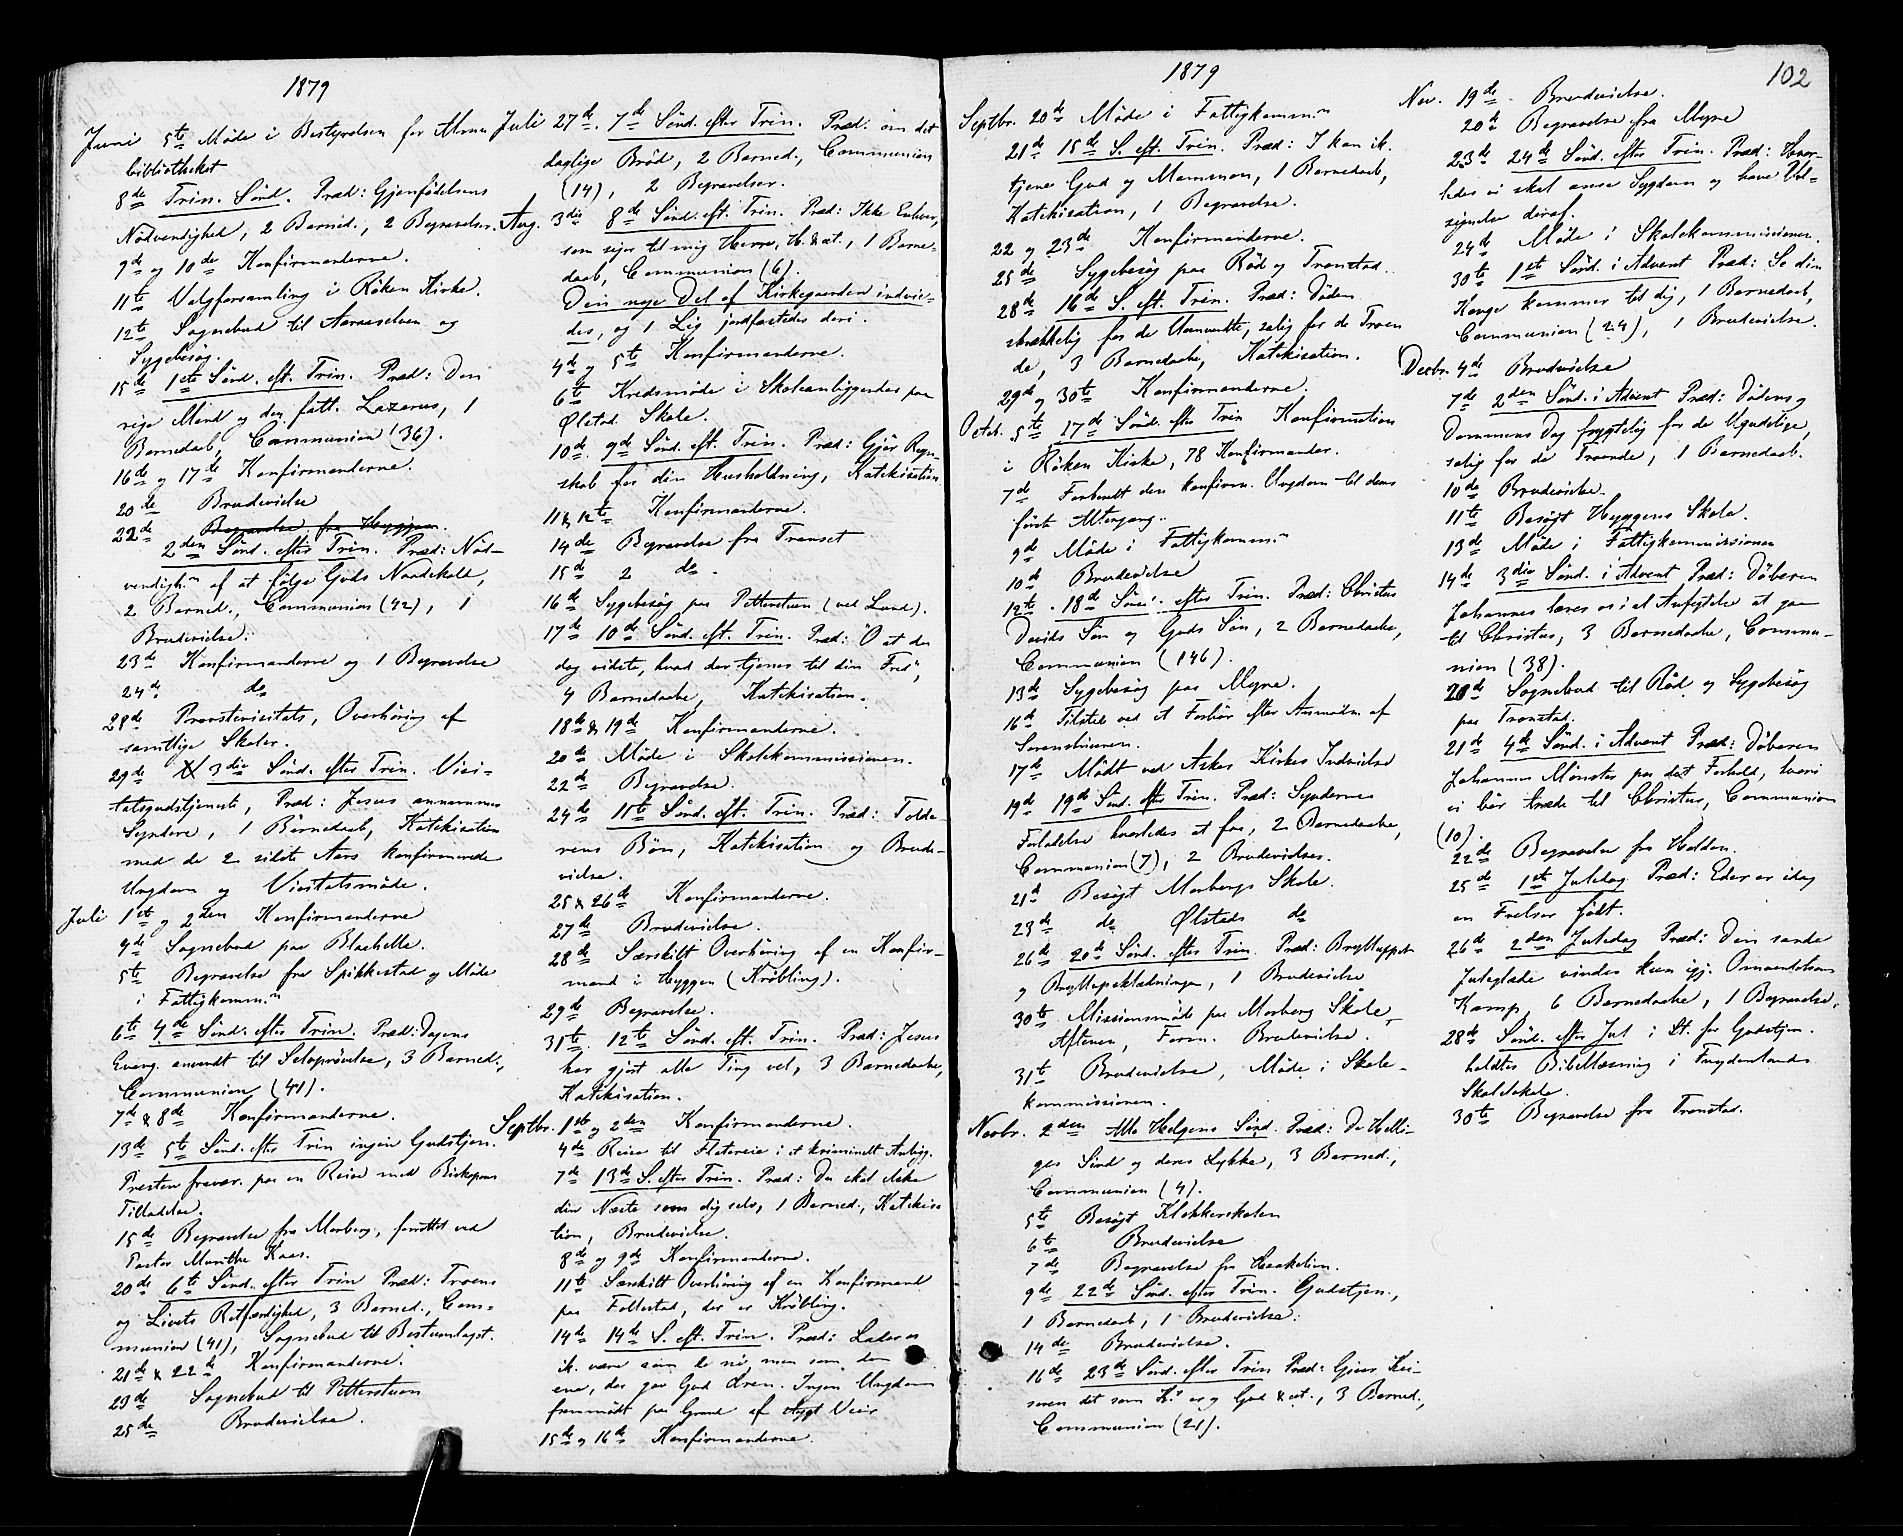 1879
Juni 5te Møde i Bestyrelsen for Almue
bibliotheket
8de Trin. Sønd. Præd: Gjenfødelsens
Nødvendighed, 2 Barned., 2 Begravelser.
9de og 10de Konfirmanderne.
11te Valgforsamling i Røken Kirke.
12te Sognebud til Aaraselven og
Sygebesøg.
15de 1ste Sønd. eft. Trin. Præd: Den
rige Mand og den fatt. Lazarus, 1
Barnedaab, Communion (36).
16de og 17de Konfirmanderne.
20de Brudevielse
22de Begravelse fra Hyggen.
2den Sønd. efter Trin. Præd: Nød-
vendigh.n af at følge Guds Naadekald,
2 Barned., Communion (42), 1
Brudevielse.
23de Konfirmanderne og 1 Begravelse
24de do
28de Provstevisitats, Overhøring af
samtlige Skoler.
29de 3die Sønd. efter Trin. Visi-
tatsgudstjeneste, Præd: Jesus annammer
Syndere, 1 Barnedaab, Katekisation
med de 2 sidste Aars konfirmerede
Ungdom og Visitatsmøde.
Juli 1ste og 2den Konfirmanderne
4de Sognebud paa Blaahella.
5te Begravelse fra Spikkestad og Møde
i Fattigkomm.n
6te 4de Sønd. efter Trin. Præd: Dagens
Evang. anvendt til Selvprøvelse, 3 Barned.,
Communion (41).
7de & 8de Konfirmanderne.
13de 5te Sønd. efter Trin ingen Gudstjen.
Presten fravær. paa en Reise med Biskopens
Tilladelse.
15de Begravelse fra Morberg, forrettet ved
Pastor Munthe Kaas.
20de 6te Sønd. efter Trin Præd: Troens
og Livets Retfærdighed, 3 Barned., Com-
munion (41), Sognebud til Bestumlagst.
21de & 22de Konfirmanderne.
23de Sognebud til Petterstuen
25de Brudevielse.
Juli 27de. 7de Sønd. efter Trin. Præd. om det
daglige Brød, 2 Barned., Communion
(14), 2 Begravelser.
Aug. 3die 8de Sønd. eft. Trin. Præd: Ikke Enhver,
som siger til mig Herre, H. & at., 1 Barne-
daab, Communion (6).
Den nye Del af Kirkegaarden indvie-
des, og 1 Lig jordfæstedes deri.
4de og 5te Konfirmanderne.
6te Kredsmøde i Skoleanliggender paa
Ølstad Skole.
10de. 9de Sønd. eft. Trin. Præd: Gjør Regn-
skab for din Husholdning, Katekisation
11 & 12te Konfirmanderne.
14de Begravelse fra Transet
15de 2 do.
16de Sygebesøg paa Petterstuen (ved Lund).
17de 10de Sønd. eft. Trin. Præd: "O at du
dog vidste, hvad der tjener til din Fred",
4 Barnedaabe, Katekisation.
18de & 19de Konfirmanderne.
20de Møde i Skolekommissionen.
22de Begravelse.
24de 11te Sønd. eft. Trin. Præd: Tolde-
rens Bøn, Katekisation og Brude-
vielse.
25 & 26de Konfirmanderne.
27de Brudevielse.
28de Særskilt Overhøring af en Konfir-
mand i Hyggen (Krøbling).
29de Begravelse.
31te 12te Sønd. eft. Trin. Præd: Jesus
har gjort alle Ting vel, 3 Barnedaabe,
Katekisation.
Septbr. 1ste og 2den Konfirmanderne.
4de Reise til Flateseie i et kriminelt Anligg.
7de 13de S. efter Trin. Præd: Du skal elske
din Næste som dig selv, 1 Barned., Katekisa
tion, Brudevielse.
8de og 9de Konfirmanderne.
11te Særskilt Overhøring af en Konfirmand
paa Follestad, der er Krøbling.
14de 14de S. eft. Trin. Præd: Lader os
ik. være som de ni, men som den
ene, der gav Gud Æren. Ingen Ungdom
fremmødt paa Grund af stygt Veir
15de og 16de Konfirmanderne.
1879
102
Septbr. 20de Møde i Fattigkomm.n
21de 15de S. eft. Trin. Præd: I kan ik.
tjene Gud og Mammon, 1 Barnedaab,
Katekisation, 1 Begravelse.
22 og 23de Konfirmanderne.
25de Sygebesøg paa Rød og Tronstad.
28de 16de S. eft. Trin. Præd: Døden
skrækkelig for de Uomvendte, salig for de Troen
de, 3 Barnedaabe, Katekisation.
29de og 30te Konfirmanderne.
Octob. 5te 17de Sønd. efter Trin Konfirmation
i Røken Kirke, 78 Konfirmander.
7de Forberedt den konfirm. Ungdom til deres
første Altergang.
9de Møde i Fattigkomm.n
10de Brudevielse
12te. 18de Sønd. efter Trin. Præd: Christus
Davids Søn og Guds Søn, 2 Barnedaabe,
Communion (146).
13de Sygebesøg paa Myre.
16de Tilstede ved et Forhør efter Anmodn. af
Sorenskriveren.
17de Mødt ved Askers Kirkes Indvielse
19de 19de Sønd. efter Trin. Præd: Syndernes
Forladelse hvorledes at faa, 2 Barnedaabe,
Communion (7), 2 Brudevielser.
21de Besøgt Morbergs Skole.
23de do Ølsteds do
26de 20de Sønd. efter Trin. Præd: Brylluppet
og Bryllupsklædningen, 1 Brudevielse
30te Missionsmøde paa Morberg Skole,
Aftenen, Form. Brudevielse.
31te Brudevielse, Møde i Skole-
kommissionen.
Novbr. 2den Alle Helgens Sønd. Præd: De Helli-
ges Sind og deres Lykke, 3 Barned.,
Communion (4).
5te Besøgt Klokkerskolen
6te Brudevielse
7de Begravelse fra Haakelien.
9de 22de Sønd. efter Trin. Gudstjen.,
1 Barnedaab, 1 Brudevielse.
14de Brudevielse.
16de 23de Sønd. efter Trin Præd: Giver Kei-
seren det som K.s er og Gud & ct., 3 Barned.,
Communion (21).
Nov. 19de. Brudevielse.
20de Begravelse fra Myre
23de 24de Sønd. efter Trin. Præd: Hvor-
ledes vi skal anse Sygdom og have Vel-
signelse deraf.
24de Møde i Skolekommissionen.
30te 1ste Sønd. i Advent Præd: Se din
Konge kommer til dig, 1 Barnedaab,
Communion (24), 1 Brudevielse.
Decbr. 4de Brudevielse
7de 2den Sønd. i Advent Præd: Dødens og
Dommens Dag frygtelig for de Ugudelige,
salig for de Troende, 1 Barnedaab.
10de Brudevielse.
11te Besøgt Hyggens Skole.
13de Møde i Fattigkommissionen
14de 3die Sønd. i Advent Præd: Døberen
Johannes lærer os i al Anfegtelse at gaa
til Christus, 3 Barnedaabe, Commu-
nion (38).
20de Sognebud til Rød og Sygebesøg
paa Tronstad.
21de 4de Sønd. i Advent Præd: Døberen
Johannes Mønster paa det Forhold, hvori
vi bør træde til Christus, Communion
(10).
22de Begravelse fra Holdden.
25de 1ste Juledag Præd: Eder er idag
en Frelser født.
26de 2den Juledag Præd: Den sande
Juleglæde vindes kun igj. Omvendelsens
Kamp, 6 Barnedaabe, 1 Begravelse.
28de Sønd. efter Jul i St. for Gudstjen.
holdtes Bibellæsning i Frydenlunds
Skolelokale.
30te Begravelse fra Tronstad.